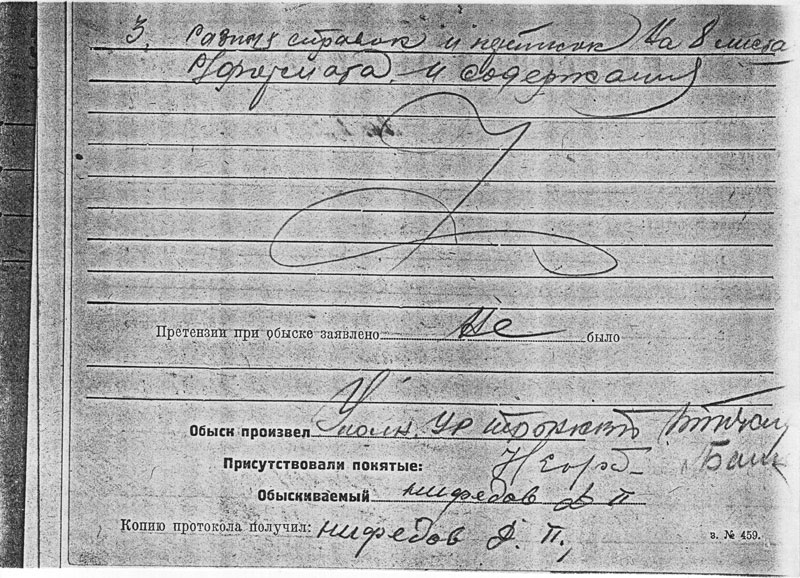 3, разных справок и почтовок на 8 листа
формата, и содержания
Претензии при обыске заявлено не было
Обыск произвел Уполн.
Присутствовали понятые:
Обыскиваемый Нифедов Ф П
Копию протокола получил: Нифедов Ф. П.,
з. № 459.